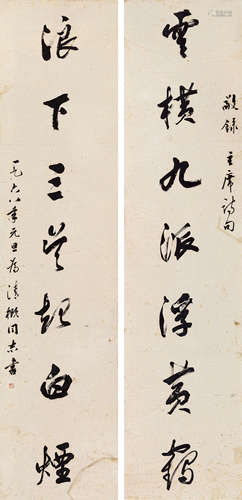 敬录 主席诗句
雲横九派浮黄鹤
浪下三吴起白煙
一九六八年元旦为 同志书